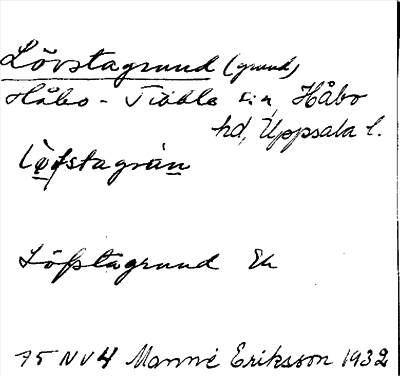 Lövstagrund (grund)
Håbo-Tibble sn, Håbo
hd, Uppsala l.
Löfstagrún
Löfstagrund Ek
75 NV4 Manne Eriksson 1932